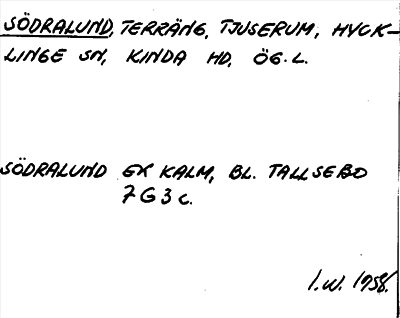 SÖDRALUND, TERRÄNG, TJUSERUM, HYCK-
LINGE SN, KINDA HD, ÖG. L.
SÖDRALUND EK KALM, BL. TALLSEBO
7G3c.
I.W. 1958.